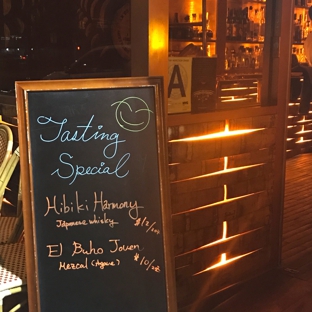 Tasting
Special
Hibiki Harmony
Japanese whisky $12/oz.
El Buho Joven
Mezcal (Agave) $10/oz.
A